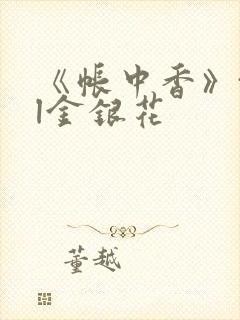 《帐中香》
|金银花
董越